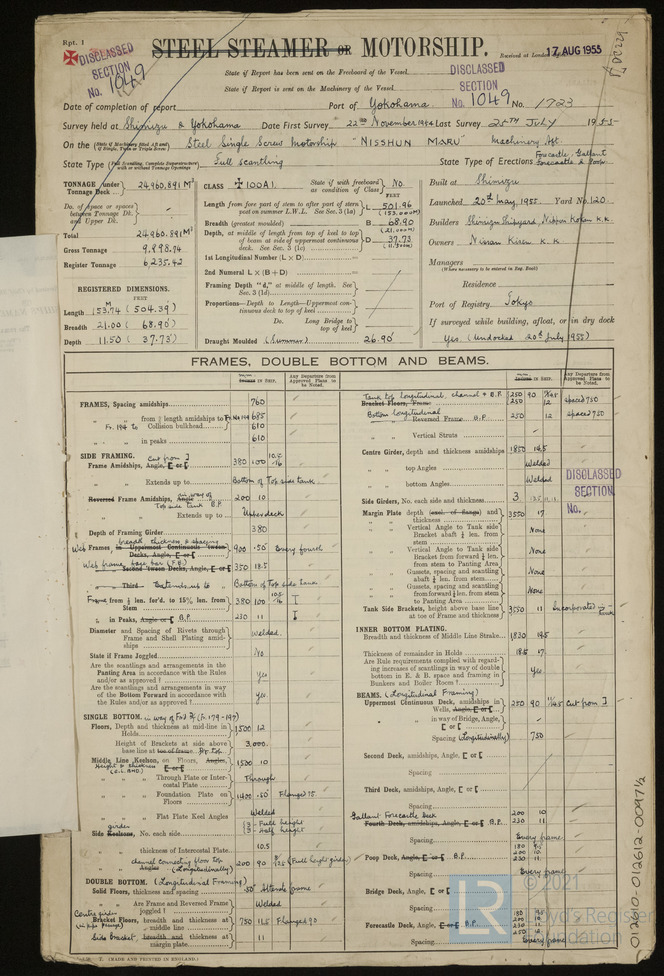 Rpt. 1
DISCLASSED
SECTION
No. 1049
STEEL STEAMER OR MOTORSHIP.
Received at London
17 AUG 1955
State if Report has been sent on the Freeboard of the Vessel
State if Report is sent on the Machinery of the Vessel
DISCLASSED
SECTION
No. 1049
Date of completion of report
Port of Yokohama
No. 1723
Survey held at Shimizu & Yokohama Date First Survey 22nd November 1954 Last Survey 20th July 1955
On the Steel Single Screw Motorship "NISSHUN MARU" Machinery Aft
State Type Full scantling
State Type of Erections Forecastle, Gallant Forecastle & Poop
TONNAGE under Tonnage Deck 24,960.891 M3
Do. of space or spaces between Tonnage Dk. and Upper Dk.
Total 24,960.891 M3
Gross Tonnage 9,998.74
Register Tonnage 6,235.42
REGISTERED DIMENSIONS.
FEET
Length 153.74 (504.39)
Breadth 21.00 (68.90)
Depth 11.50 (37.73)
CLASS +100A1.
State if with freeboard as condition of Class No
FEET
Length from fore part of stem to after part of stern post on summer L.W.L. See Sec. 3 (1a) L 501.96
(153.000m)
Breadth (greatest moulded) B 68.90
(21.000m)
Depth, at middle of length from top of keel to top of beam at side of uppermost continuous deck. See Sec. 3 (1c) D 37.73
(11.500m)
1st Longitudinal Number (L × D)
2nd Numeral L × (B + D)
Framing Depth "d," at middle of length. See Sec. 3 (1d)
Proportions—Depth to Length—Uppermost continuous deck to top of keel
Do. Long Bridge to top of keel
Draught Moulded (Summer) 26.90'
Built at Shimizu
Launched 20th May, 1955 Yard No. 120
Builders Shimizu Shipyard, Nippon Kokan K.K.
Owners Nissan Kisen K.K.
Managers
(Where necessary to be entered in Reg. Book)
Residence
Port of Registry Tokyo
If surveyed while building, afloat, or in dry dock
Yes. (Undocked 20th July 1955)
FRAMES, DOUBLE BOTTOM AND BEAMS.
Any Departure from Approved Plans to be Noted.
FRAMES, Spacing amidships 760
" " from 1/5 length amidships to Fr. No 194 685
Fr. 194 to Collision bulkhead 610
" " in peaks 610
SIDE FRAMING.
Cut from I
Frame Amidships, Angle, E or [ 380 100 10.5/16
" " Extends up to Bottom of Top side tank
Reversed Frame Amidships, Angle in way of Top side tank B.P 200 10
" " Extends up to Upper deck
Depth of Framing Girder 380
breadth thickness & spacing
Web Frames in Uppermost Continuous 'Tween Decks, Angle, E or [ 900 .50 Every fourth
Web frame base bar (F.B.)
Second 'Tween Decks, Angle, E or [ 350 18.5
" Third " Extends up to " Bottom of Top side tank
Frame from 1/5 len. for'd. to 15% len. from Stem 380 100 10.5/16 I
" in Peaks, Angle or [ B.P. 230 11 I
Diameter and Spacing of Rivets through Frame and Shell Plating amidships Welded.
State if Frame Joggled No
Are the scantlings and arrangements in the Panting Area in accordance with the Rules and/or as approved? Yes
Are the scantlings and arrangements in way of the Bottom Forward in accordance with the Rules and/or as approved? Yes.
SINGLE BOTTOM. in way of Fwd Pp (Fr. 179-194)
Floors, Depth and thickness at mid-line in Holds 1500 12
Height of Brackets at side above base line at toe of frame 3,000.
Middle Line Keelson, on Floors, Angles, E or [ 1500 10
Height & thickness
(C.L. BHD.)
" " Through Plate or Intercostal Plate Through
" " Foundation Plate on Floors 1400 .50 Flange 75.
" " Flat Plate Keel Angles Welded
girder
Side Keelsons, No. each side 3 - Full height
3 - Half height
" " thickness of Intercostal Plate 10.5
channel connecting floor top
" " Angles (Longitudinally) 200 90 (Full height girder)
DOUBLE BOTTOM. (Longitudinal Framing)
Solid Floors, thickness and spacing .50 Alternate frame
" " Are Frame and Reversed Frame joggled? Welded
Centre girder
Bracket Floors, breadth and thickness at middle line 750 11.5 Flanged 90
Side bracket, breadth and thickness at margin plate 11
Tank top longitudinal, channel & B.P.
Bracket Floors, Frame 250 90 spaced 750
250 12
Bottom longitudinal
Reversed Frame B.P 250 12 spaced 750
" " Vertical Struts
Centre Girder, depth and thickness amidships 1850 14.5
" " top Angles Welded
" " bottom Angles Welded
Side Girders, No. each side and thickness 3
Margin Plate depth (excl. of flange) and thickness 3550 17
" " Vertical Angle to Tank side Bracket abaft 1/4 len. from stem None
" " Vertical Angle to Tank side Bracket from forward 1/4 len. from stem to Panting Area None
" " Gussets, spacing and scantling abaft 1/4 len. from stem None
" " Gussets, spacing and scantling from forward 1/4 len. from stem to Panting Area None
Tank Side Brackets, height above base line at toe of Frame and thickness 3550 11 Incorporated in tank
DISCLASSED
SECTION.
No.
INNER BOTTOM PLATING.
Breadth and thickness of Middle Line Strake 1830 19.5
Thickness of remainder in Holds 18.5 17
Are Rule requirements complied with regarding increases of scantlings in way of double bottom in E. & B. space and framing in Bunkers and Boiler Room? Yes
BEAMS. (Longitudinal Framing)
Uppermost Continuous Deck, amidships in Wells, Angle, E or [ 250 90 Cut from I
" " in way of Bridge, Angle, E or [
Spacing (Longitudinally) 750
Second Deck, amidships, Angle, E or [
Spacing
Third Deck, amidships, Angle, E or [
Spacing
Gallant Forecastle Deck
Fourth Deck, amidships, Angle, E or [ B.P. 200 10
230 11
Spacing Every frame
Poop Deck, Angle, E or [ B.P.
230 11
Spacing Every frame
Bridge Deck, Angle, E or [
Spacing
Forecastle Deck, Angle, E or [ B.P.
230 11
250 12
Spacing Every frame
(MADE AND PRINTED IN ENGLAND.)
012610-012612-0097 1/2
LR
© 2021
Lloyd's Register
Foundation